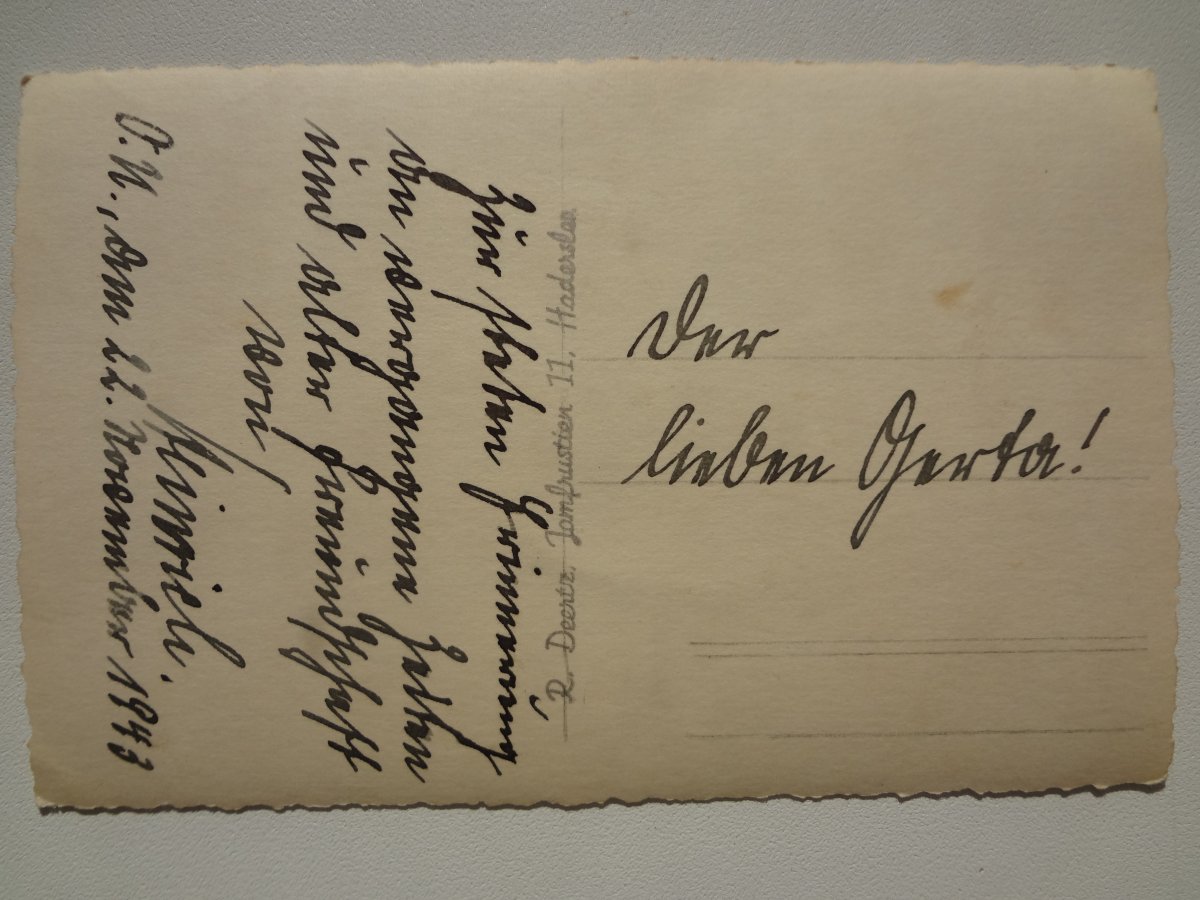 Zur steten Erinnerung
an vergangene Zeiten
und alter Freundschaft
von
Hinrich.
O.U., den 22. November 1943
R. Deertz. Jomfrustien 11. Haderslev
Der
lieben Gerta!